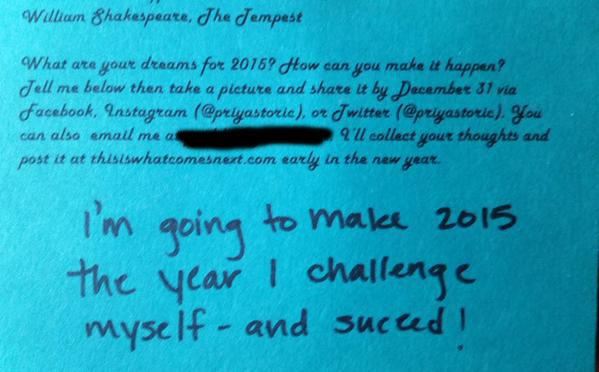 William Shakespeare, The Tempest
What are your dreams for 2015? How can you make it happen?
Tell me below then take a picture and share it by December 31 via
Facebook, Instagram (@priyastoric), or Twitter (@priyastoric). You
can also email me a I'll collect your thoughts and
post it at thisiswhatcomesnext.com early in the new year.
I'm going to make 2015
the year I challenge
myself - and succeed!